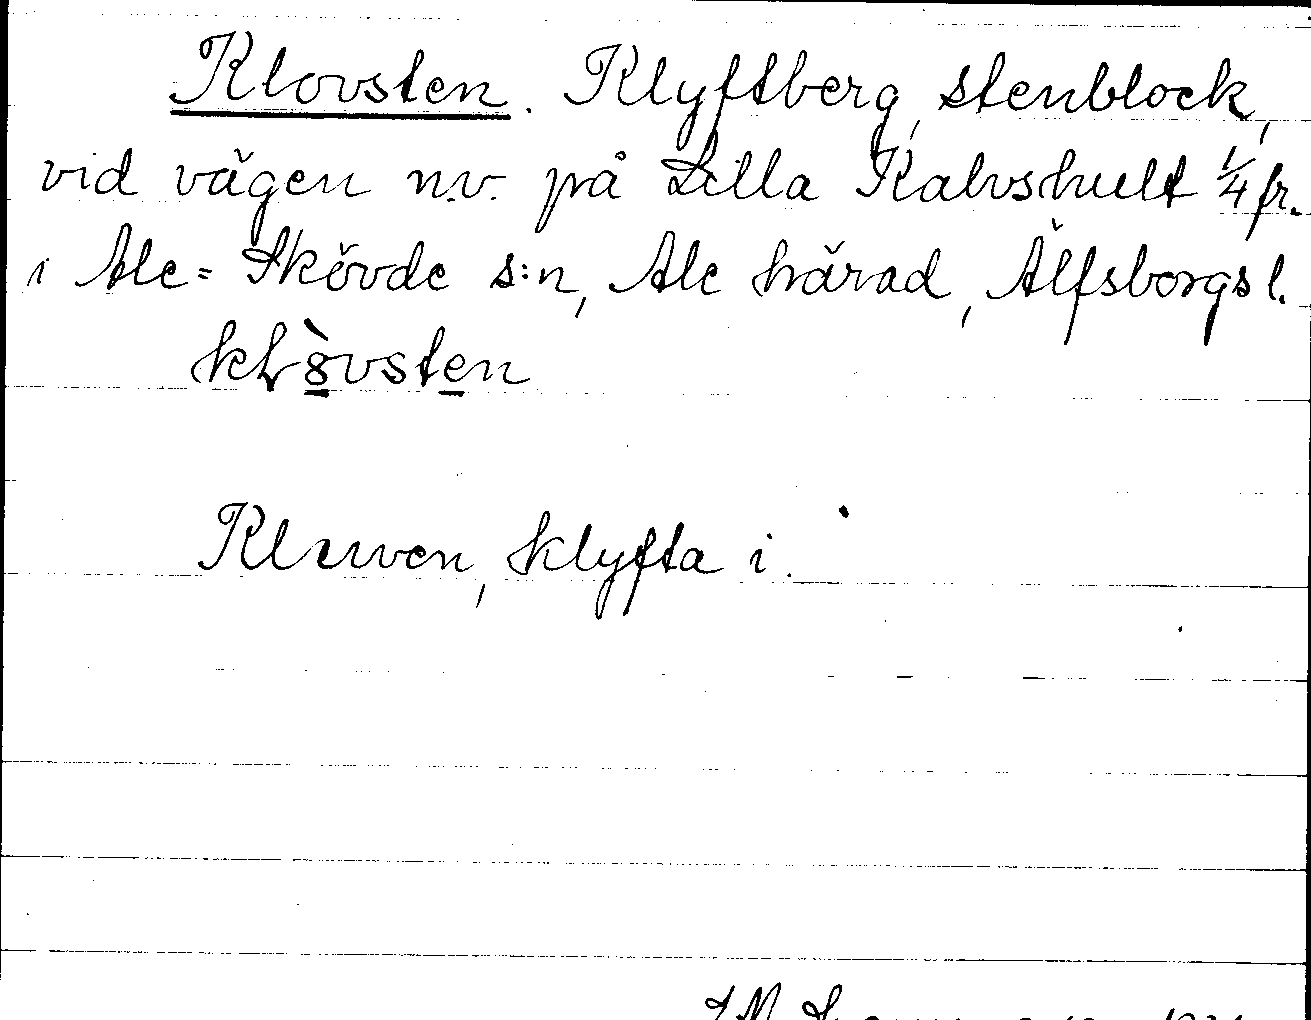 Klovsten. Klyftberg, stenblock,
vid vägen n.v. på Lilla Kalvshult 1/4 fr.
i Ale=Skövde s:n, Ale härad, Älfsborgs l.
Kluven, klyfta i.